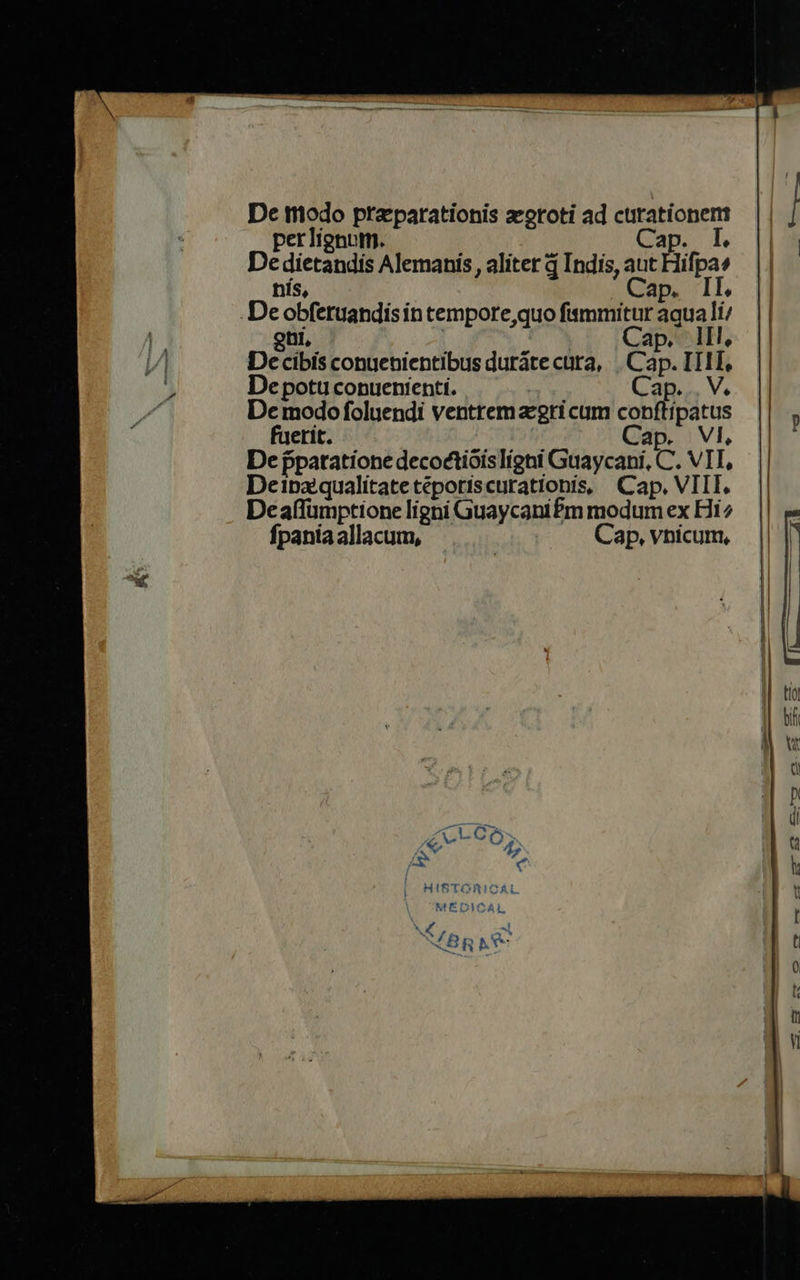 De modo præparationis ægroti ad curationem
per lignum. Cap. I.
De dietandis Alemanis, aliter q̃ Indis, aut Hispa⸗
nis, Cap. II.
De obſeruandis in tempore, quo ſummitur aqua li/
gni, Cap. III,
De cibis conuenientibus durāte cura, Cap. IIII,
De potu conuenienti. Cap. V.
De modo ſoluendi ventrem ægri cum conſtipatus
fuerit. Cap. VI,
De p̄paratione decoctiōis ligni Guaycani, C. VII,
De inæqualitate tēporis curationis, Cap. VIII.
De aſſumptione ligni Guaycani ſm modum ex Hi⸗
ſpania allacum, Cap, vnicum,
WELLCOME
HISTORICAL
MEDICAL
LIBRARY